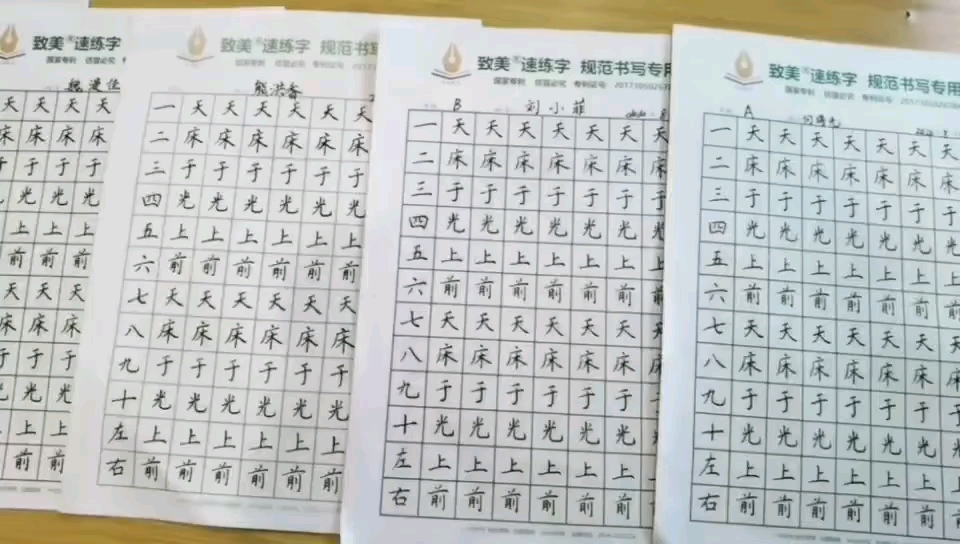 致美速练字
魏漫佳
天天天天
床床床床
于于于于
光光光
上上上
前前前
天天天
床床床
于于于
光光光
上上
前前
致美速练字 规范书写
国家专利 仿冒必究 专利证号:
熊洪香
一天天天天天天
二床床床床床床
三于于于于于于
四光光光光光光
五上上上上上上
六前前前前前前
七天天天天天
八床床床床床
九于于于于于
十光光光光光
左上上上上上
右前前前前前
致美速练字 规范书写专用
国家专利 仿冒必究 专利证号:
B 刘小菲
一天天天天天天
二床床床床床床
三于于于于于于
四光光光光光光
五上上上上上上
六前前前前前前
七天天天天天天
八床床床床床床
九于于于于于于
十光光光光光光
左上上上上上上
右前前前前前
致美速练字 规范书写专用
国家专利 仿冒必究 专利证号:
A
一天天天天天天
二床床床床床床
三于于于于于于
四光光光光光光
五上上上上上上
六前前前前前前
七天天天天天天
八床床床床床床
九于于于于于于
十光光光光光光
左上上上上上上
右前前前前前前